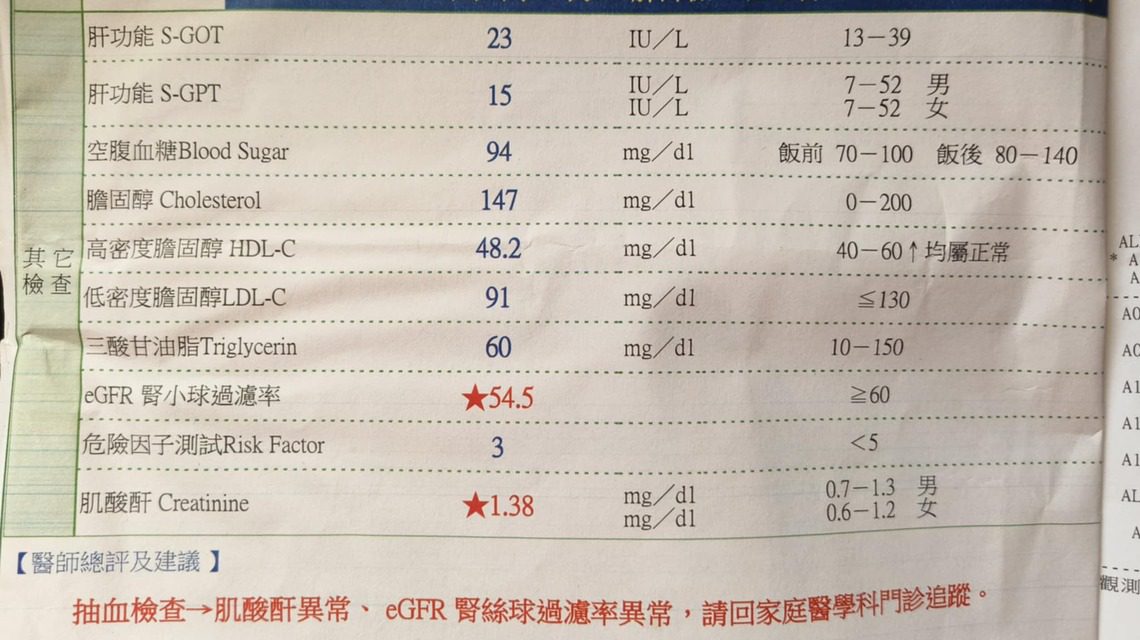 肝功能 S-GOT 23 IU／L 13－39
肝功能 S-GPT 15 IU／L 7－52 男
IU／L 7－52 女
空腹血糖Blood Sugar 94 mg／dl 飯前 70－100 飯後 80－140
膽固醇 Cholesterol 147 mg／dl 0－200
高密度膽固醇 HDL-C 48.2 mg／dl 40－60↑均屬正常
低密度膽固醇LDL-C 91 mg／dl ≦130
三酸甘油脂Triglycerin 60 mg／dl 10－150
eGFR 腎小球過濾率 ★54.5 ≧60
危險因子測試Risk Factor 3 <5
肌酸酐 Creatinine ★1.38 mg／dl 0.7－1.3 男
mg／dl 0.6－1.2 女
其它
檢查
【醫師總評及建議】
抽血檢查→肌酸酐異常、eGFR 腎絲球過濾率異常，請回家庭醫學科門診追蹤。
AL
* A
A
A0
A0
A1
A1
A1
AL
A
觀測